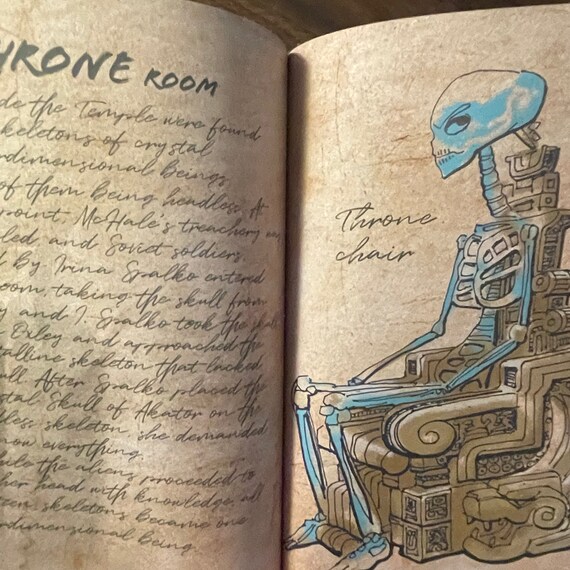 THRONE ROOM
the Temple were found
skeletons of crystal
beings,
of them being headless. At
point, McHale's treachery was
and Soviet soldiers,
by Irina Spalko entered
room, taking the skull from
and I. Spalko took the skull
Oxley and approached the
skeleton that lacked
After Spalko placed the
Skull of Akator on the
skeleton, she demanded
know everything.
the aliens proceeded to
her head with knowledge, all
skeletons became one
being
Throne
chair